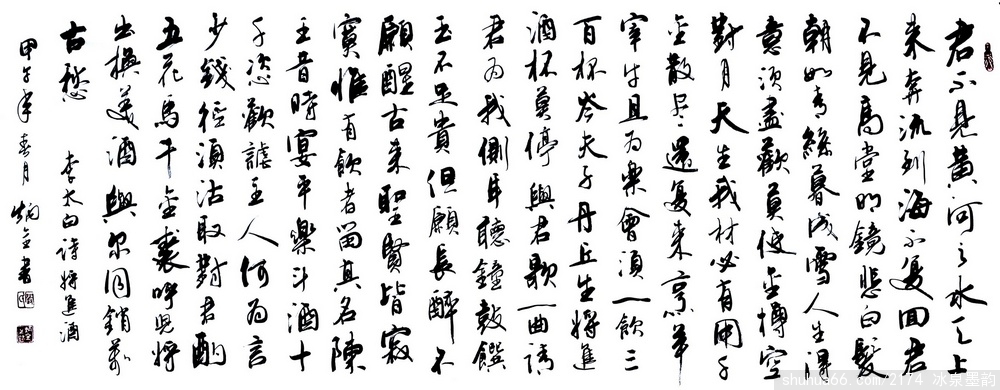 君不見黃河之水天上
来奔流到海不复回君
不見高堂明鏡悲白髮
朝如青絲暮成雪人生得
意須盡歡莫使金樽空
對月天生我材必有用千
金散尽還复来烹羊
宰牛且为樂會須一飲三
百杯岑夫子丹丘生將進
酒杯莫停與君歌一曲請
君为我側耳聽鐘鼓饌
玉不足貴但願長醉不
願醒古来聖賢皆寂
寞惟有飲者留其名陳
王昔時宴平樂斗酒十
千恣歡謔主人何为言
少錢徑須沽取對君酌
五花馬千金裘呼兒將
出換美酒與尔同銷萬
古愁 李太白詩將進酒
甲午年春月 炳金書
shuhua66.com/2174 冰泉墨韵